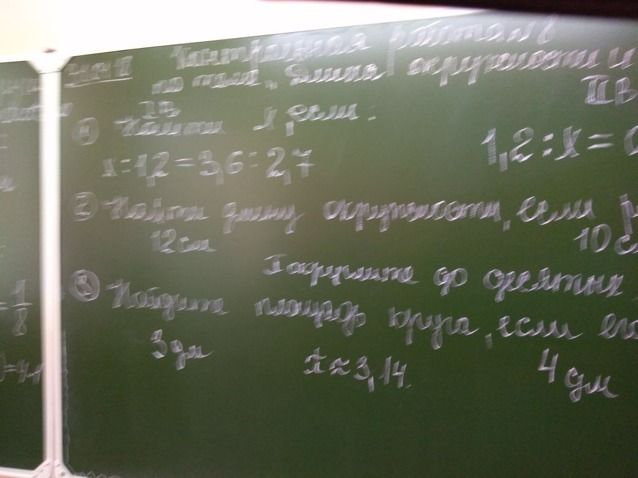 Контрольная работа
по теме „Длина окружности и
IВ
IIВ
① Найти x, если:
x : 1,2 = 3,6 : 2,7
1,2 : x = 0
② Найти длину окружности, если
12 см
10 с
Округлите до десятых
③ Найдите площадь круга, если его
3 дм
π ≈ 3,14.
4 дм
= 1/8
= 4,1